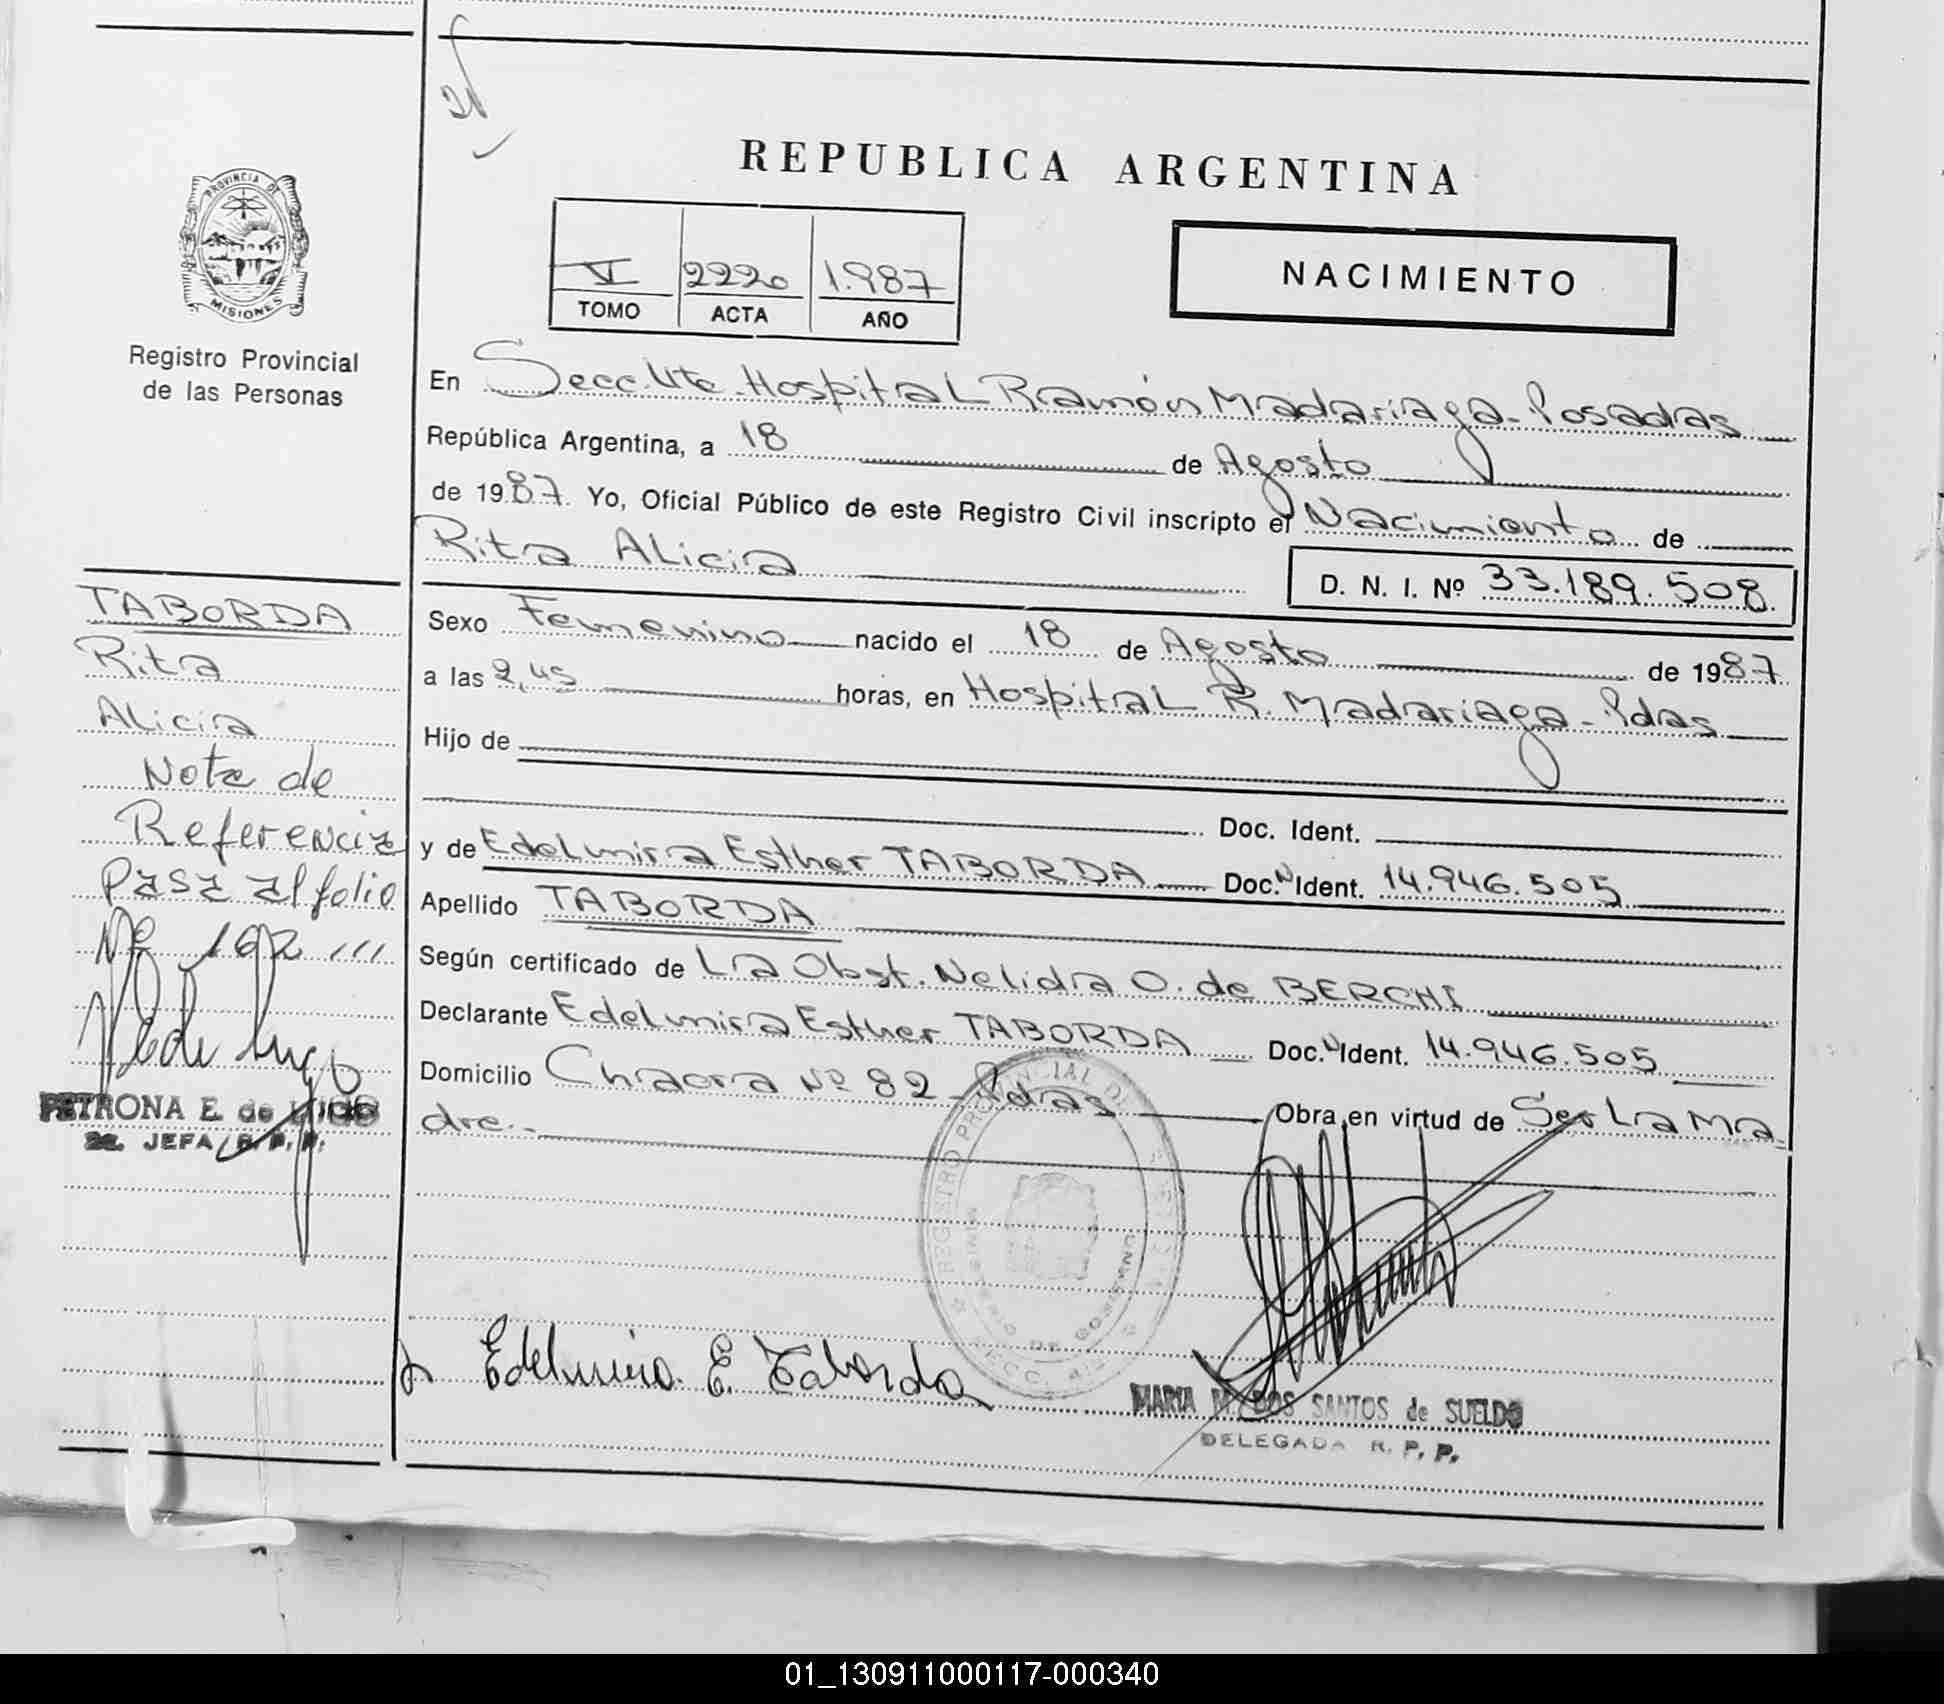 REPUBLICA ARGENTINA
PROVINCIA DE
MISIONES
Registro Provincial
de las Personas
V 2220 1.987
TOMO ACTA AÑO
NACIMIENTO
En Secc. Hospital Ramón Madariaga - Posadas
República Argentina, a 18 de Agosto
de 1987. Yo, Oficial Público de este Registro Civil inscripto el Nacimiento de
Rita Alicia
D. N. I. Nº 33.189.508
Sexo Femenino nacido el 18 de Agosto de 1987
a las 2,45 horas, en Hospital R. Madariaga - Pdas
Hijo de
Doc. Ident.
y de Edelmira Esther TABORDA Doc. Ident. 14.946.505
Apellido TABORDA
Según certificado de La Obst. Nelida O. de BERCHI
Declarante Edelmira Esther TABORDA Doc. Ident. 14.946.505
Domicilio Chacra Nº 82 - Pdas Obra en virtud de Ser La Ma-
dre.-
TABORDA
Rita
Alicia
Nota de
Referencia
Pasa al folio
Nº 192 ///
PETRONA E. de LUGO
2a. JEFA R. P. P.
REGISTRO PROVINCIAL DE
MINISTERIO DE GOBIERNO
Edelmira E. Taborda
MARIA M. DOS SANTOS de SUELDO
DELEGADA R. P. P.
01_130911000117-000340